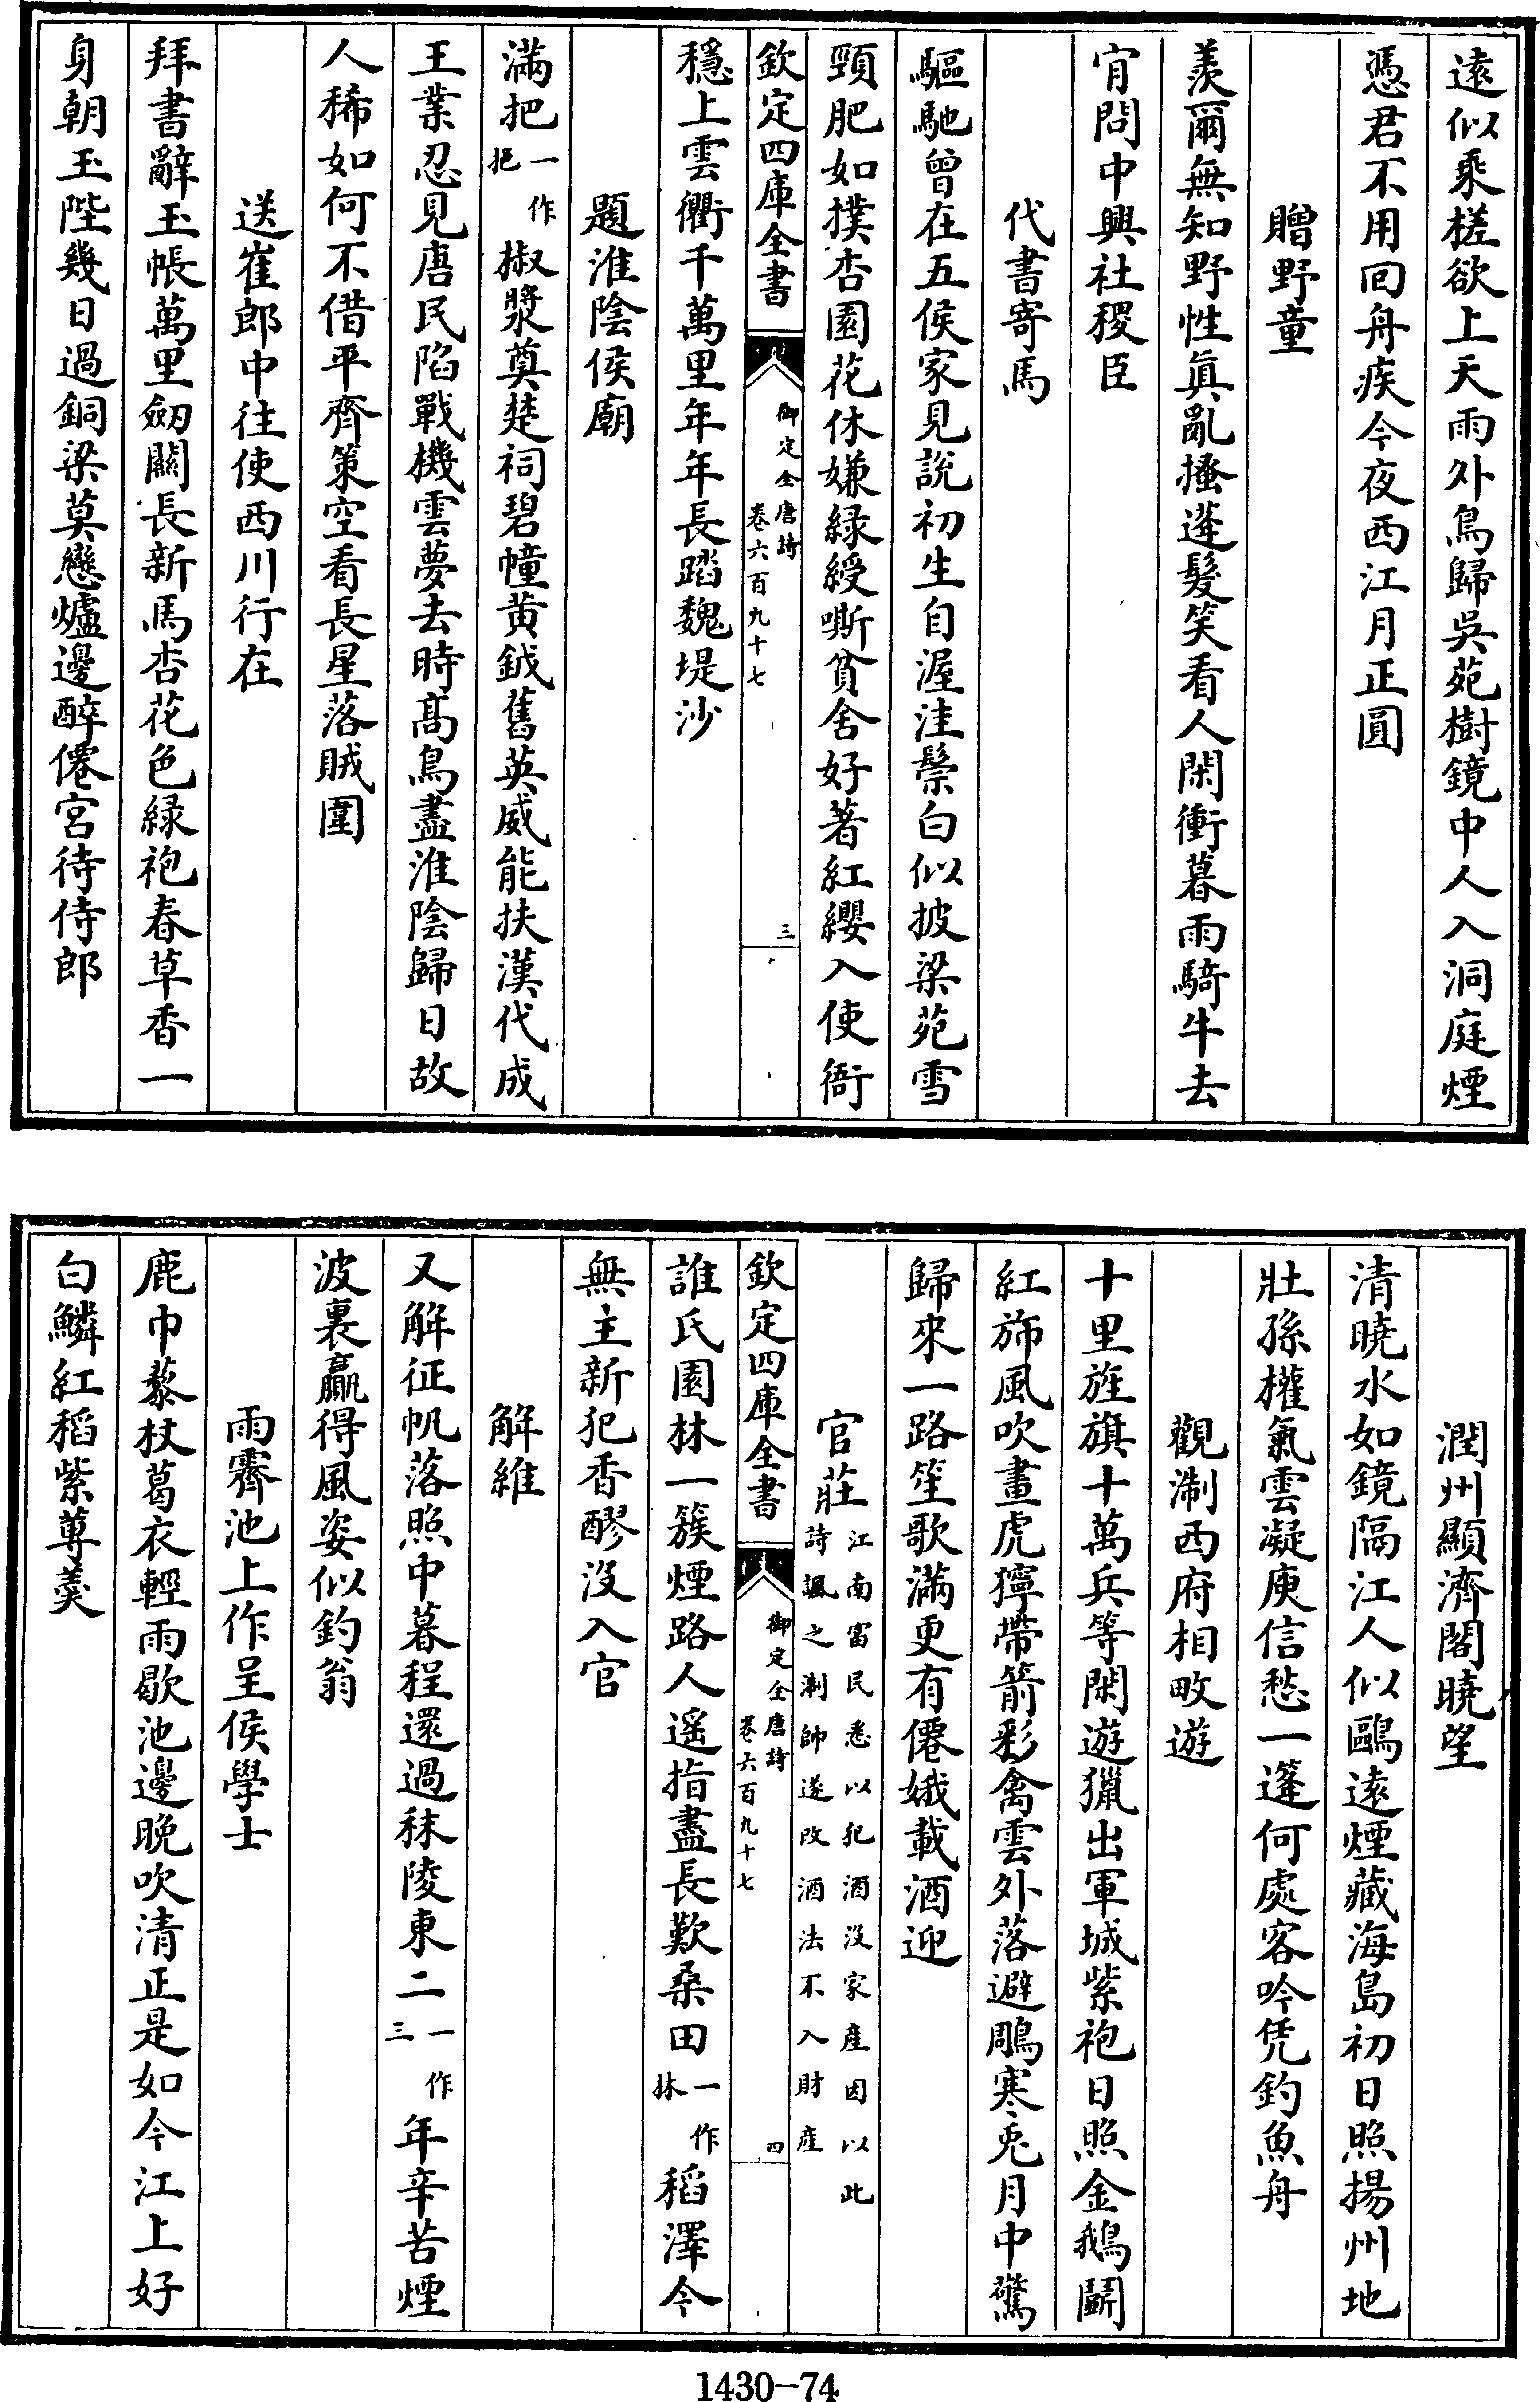 遠似乘槎欲上天雨外鳥歸吳苑樹鏡中人入洞庭煙
憑君不用回舟疾今夜西江月正圓
贈野童
羨爾無知野性眞亂搔蓬髮笑看人閑衝暮雨騎牛去
肯問中興社稷臣
代書寄馬
驅馳曾在五侯家見說初生自渥洼鬃白似披梁苑雪
頸肥如撲杏園花休嫌緑綬嘶貧舍好著紅纓入使衙
欽定四庫全書
御定全唐詩
卷六百九十七
三
穩上雲衢千萬里年年長踏魏堤沙
題淮陰侯廟
滿把一作挹椒漿奠楚祠碧幢黄鉞舊英威能扶漢代成
王業忍見唐民陷戰機雲夢去時髙鳥盡淮陰歸日故
人稀如何不借平齊策空看長星落賊圍
送崔郎中往使西川行在
拜書辭玉帳萬里劒關長新馬杏花色緑袍春草香一
身朝玉陛幾日過銅梁莫戀爐邊醉僊宮待侍郎
潤州顯濟閣曉望
清曉水如鏡隔江人似鷗遠煙藏海島初日照揚州地
壯孫權氣雲凝庾信愁一篷何處客吟凭釣魚舟
觀浙西府相畋遊
十里旌旗十萬兵等閑遊獵出軍城紫袍日照金鵝鬬
紅斾風吹畫虎獰帶箭彩禽雲外落避鵰寒兎月中驚
歸來一路笙歌滿更有僊娥載酒迎
官莊江南富民悉以犯酒没家産因以此
詩諷之浙帥遂改酒法不入財産
欽定四庫全書
御定全唐詩
卷六百九十七
四
誰氏園林一簇煙路人遥指盡長歎桑田一作林稻澤今
無主新犯香醪没入官
解維
又解征帆落照中暮程還過秣陵東二一作三年辛苦煙
波裏贏得風姿似釣翁
雨霽池上作呈侯學士
鹿巾藜杖葛衣輕雨歇池邊晚吹清正是如今江上好
白鱗紅稻紫蓴羮
1430-74